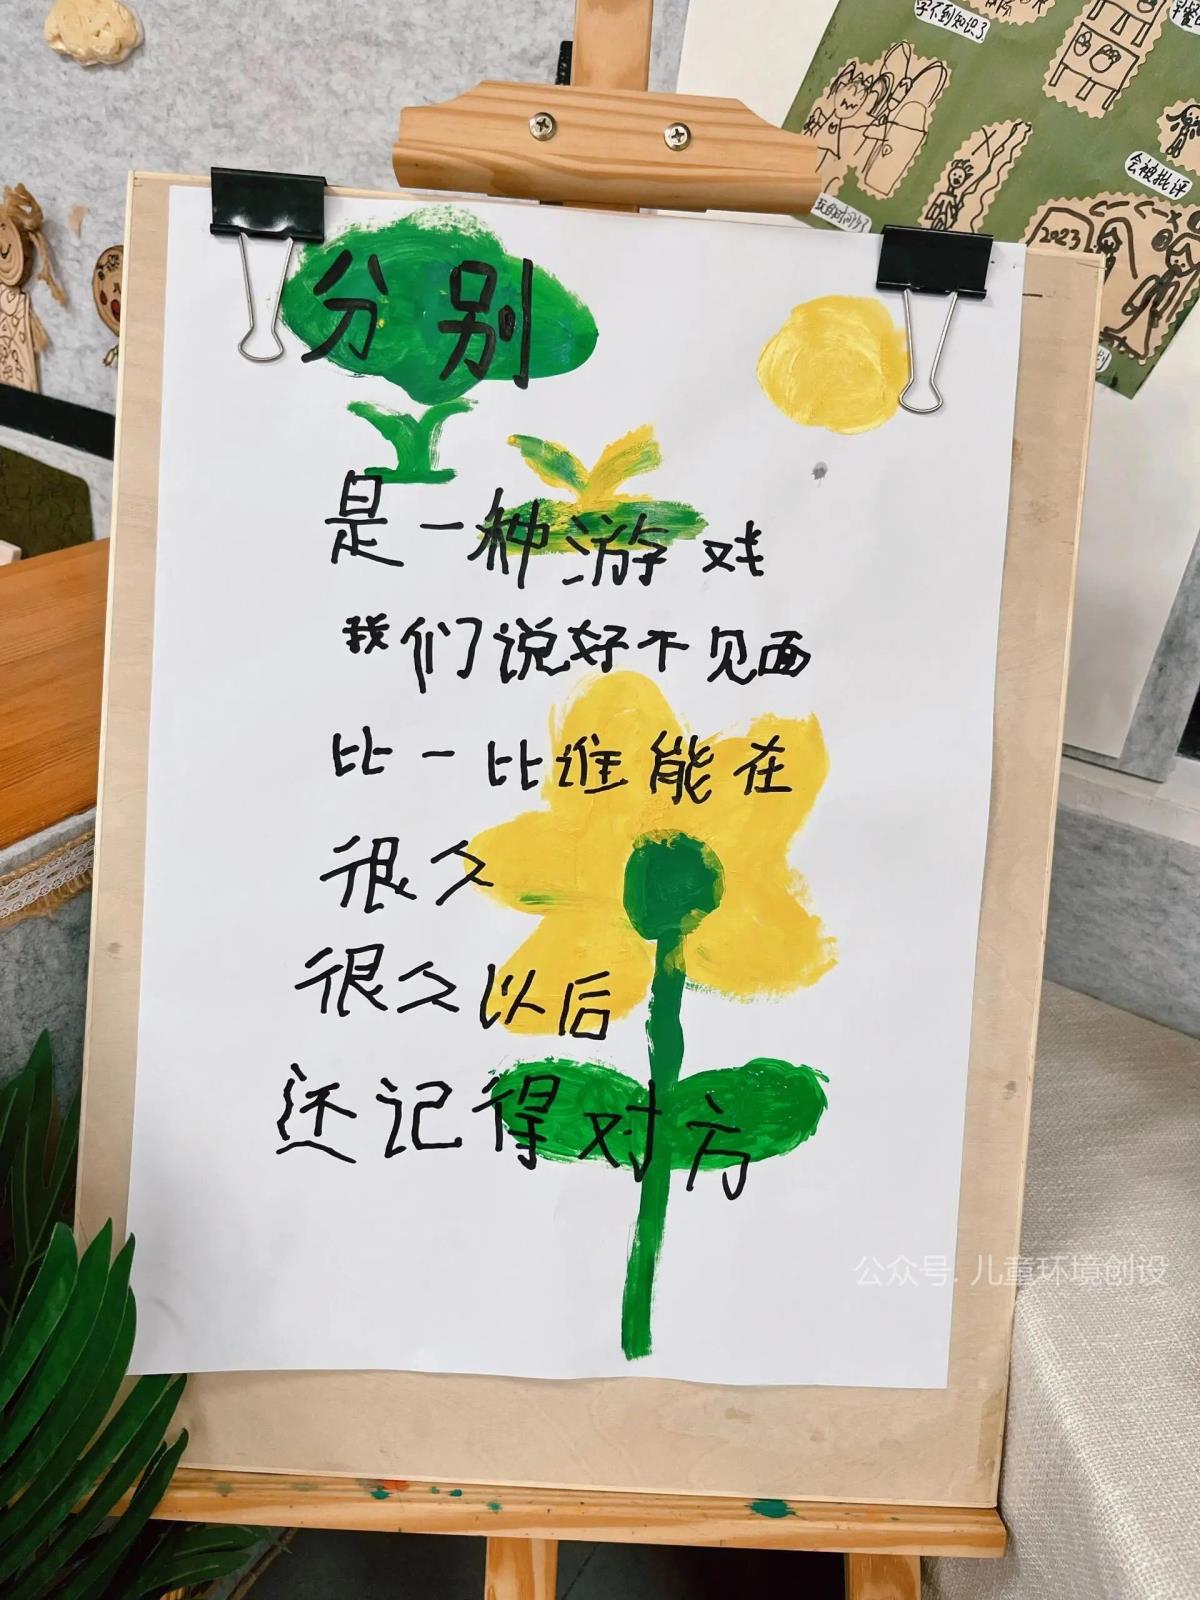 分别
是一种游戏
我们说好不见面
比一比谁能在
很久
很久以后
还记得对方
公众号. 儿童环境创设
学不到知识了
会被批评
2023